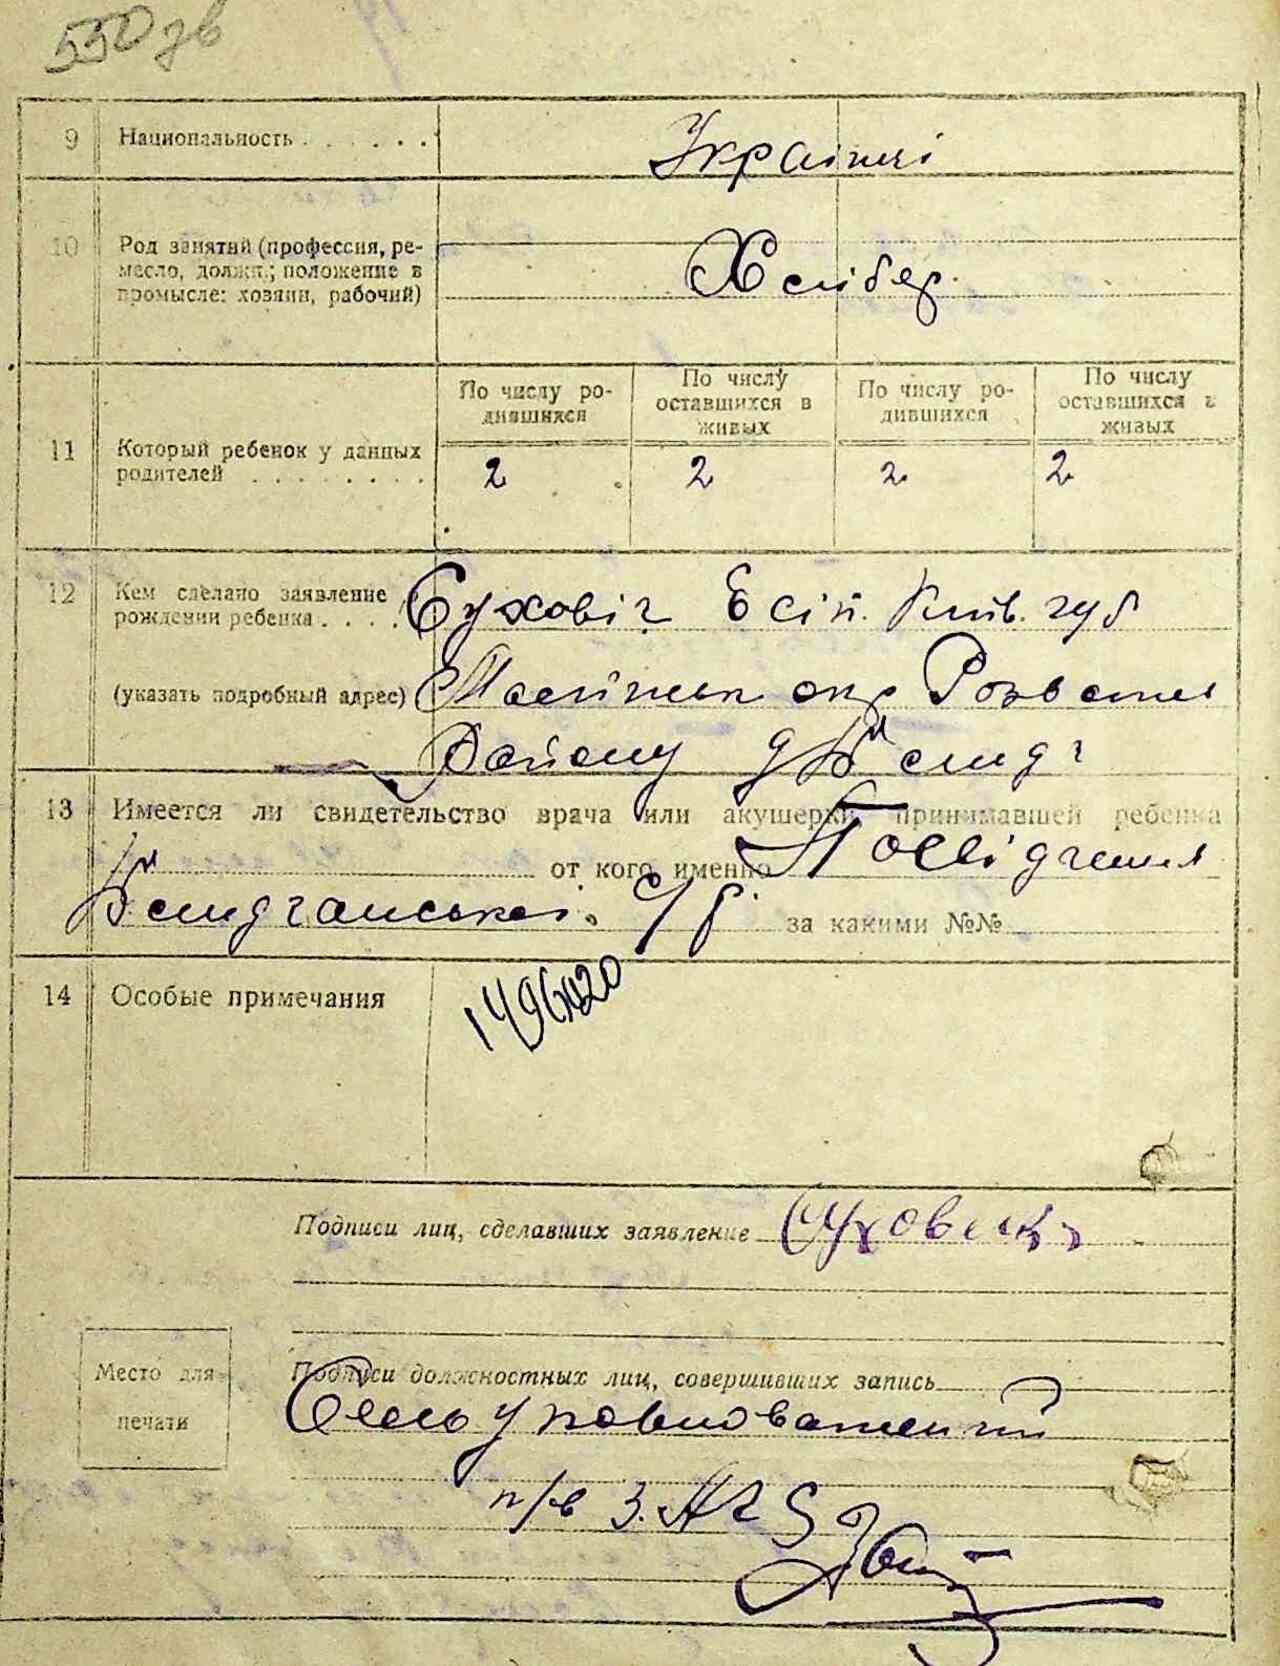 550 зв
9 Национальность . . . . . . Українці
10 Род занятий (профессия, ре-
месло, должн.; положение в
промысле: хозяин, рабочий)
Хлібор.
По числу ро-
дившихся
По числу
оставшихся в
живых
По числу ро-
дившихся
По числу
оставшихся в
живых
11 Который ребенок у данных
родителей . . . . . . . .
2 2 2 2
12 Кем сделано заявление
рождении ребенка . . . . Суховіч Есіп. Київ. губ
(указать подробный адрес) окр
Району
13 Имеется ли свидетельство врача или акушерки принимавшей ребенка
от кого именно Посвідчення
с/р. за какими №№
14 Особые примечания
Подписи лиц, сделавших заявление
Место для
печати
Подписи должностных лиц, совершивших запись
Сельуповноважений
п/в З.А.Г.С